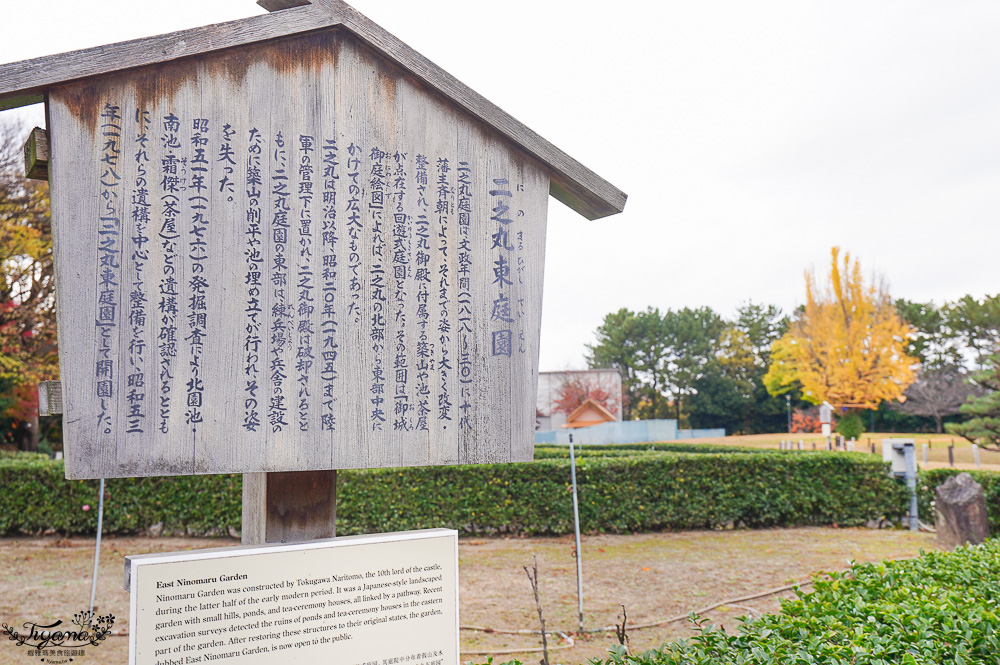 にのまるひがしていえん
二之丸東庭園
二之丸庭園は、文政年間(一八一八〜三〇)に十代
藩主斉朝によって、それまでの姿から大きく改変・
整備され、二之丸御殿に付属する築山や池、茶屋
が点在する回遊式庭園となった。その範囲は「御城
御庭絵図」によれば、二之丸の北部から東部中央に
かけての広大なものであった。
二之丸は明治以降、昭和二〇年(一九四五)まで陸
軍の管理下に置かれ、二之丸御殿は破却されるとと
もに、二之丸庭園の東部は練兵場や兵舎の建設の
ために築山の削平や池の埋め立てが行われ、その姿
を失った。
昭和五一年(一九七六)の発掘調査により北園池・
南池・霜傑(茶屋)などの遺構が確認されるととも
に、それらの遺構を中心として整備を行い、昭和五三
年(一九七八)から「二之丸東庭園」として開園した。
East Ninomaru Garden
Ninomaru Garden was constructed by Tokugawa Naritomo, the 10th lord of the castle,
during the latter half of the early modern period. It was a Japanese-style landscaped
garden with small hills, ponds, and tea-ceremony houses, all linked by a pathway. Recent
excavation surveys detected the ruins of ponds and tea-ceremony houses in the eastern
part of the garden. After restoring these structures to their original states, the garden,
dubbed East Ninomaru Garden, is now open to the public.
Yujana